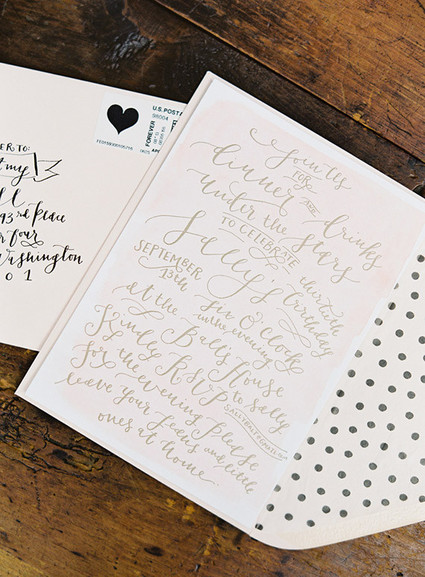 U.S. POSTA
98004
FOREVER
ER TO:
93rd Place
four
Washington
0 1
Join Us
FOR
dinner AND drinks
under the stars
TO CELEBRATE
Sally's thirtieth birthday
SEPTEMBER 13th six O'Clock in the evening
at the Balls House
Kindly RSVP to Sally
for the evening please
leave your and little
ones at home